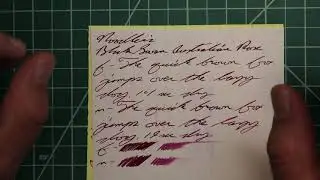 Noodler's
Black Swan Australian Rose
f - The quick brown fox
jumps over the lazy
dog. sec dry
m - The quick brown fox
jumps over the lazy
dog. sec dry
f -
m -